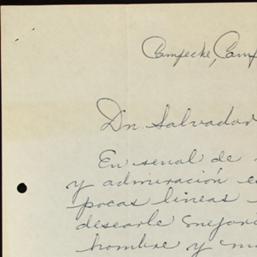 Campeche, Camp
Dn. Salvador
En señal de
y admiración
pocas lineas
desearle mejore
hombre y